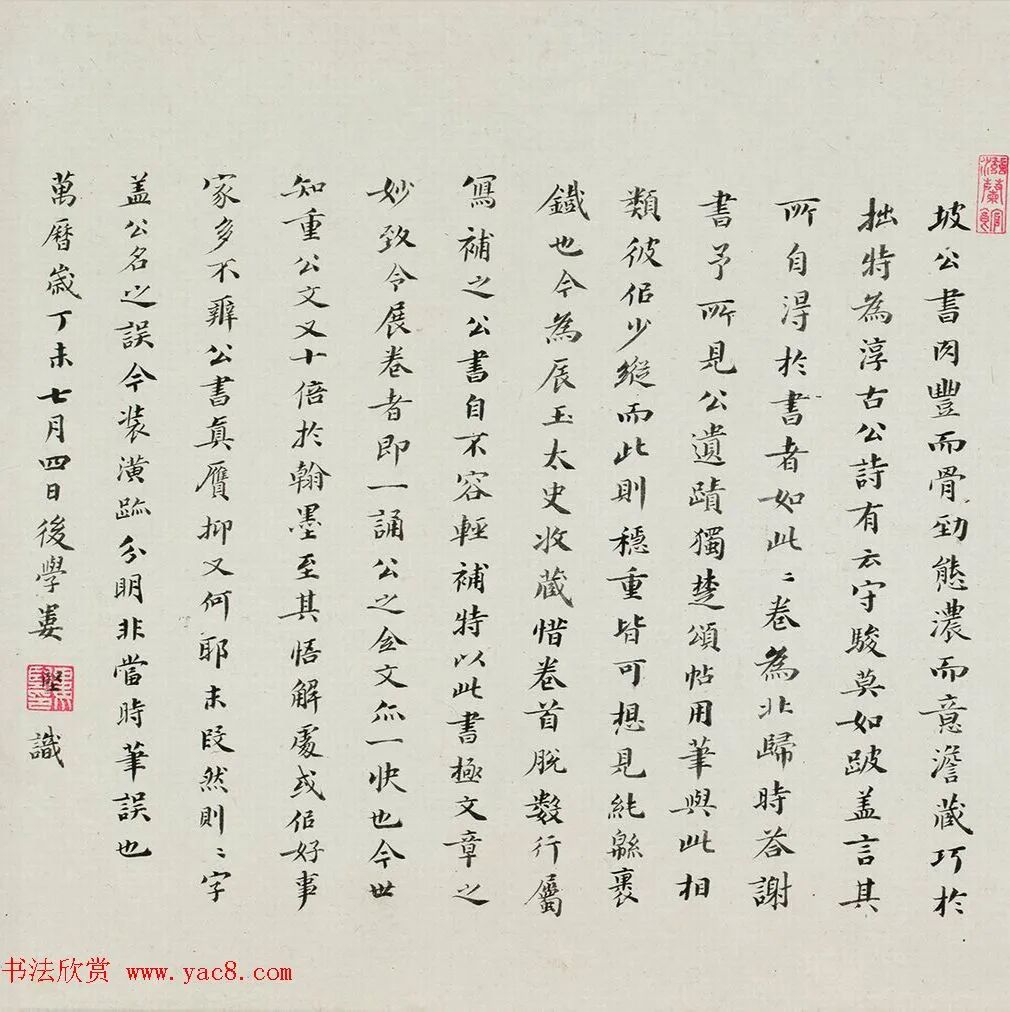 坡公書肉豐而骨勁態濃而意澹藏巧於
拙特為淳古公詩有云守駿莫如跛盖言其
所自得於書者如此二卷為北歸時答謝
書予所見公遺蹟獨楚頌帖用筆與此相
類彼佀少縱而此則穩重皆可想見純緜裹
鐵也今為辰玉太史收藏惜卷首脫數行屬
寫補之公書自不容輕補特以此書極文章之
妙致令展卷者即一誦公之全文亦一快也今世
知重公文又十倍於翰墨至其悟解處或佀好事
家多不辨公書真贋抑又何耶末段然則二字
盖公名之誤今装潢跡分明非當時筆誤也
萬曆歲丁未七月四日後學婁堅識
书法欣赏 www.yac8.com